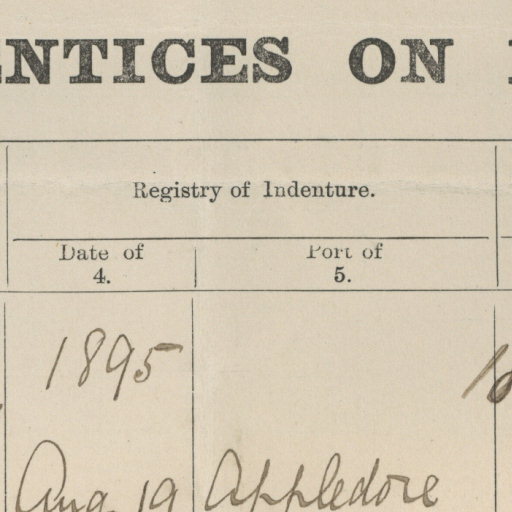 ENTICES ON
Registry of Indenture.
Date of Port of
4. 5.
1895
Aug 19 Appledore